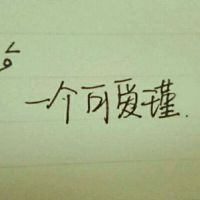 一个可爱瑾.